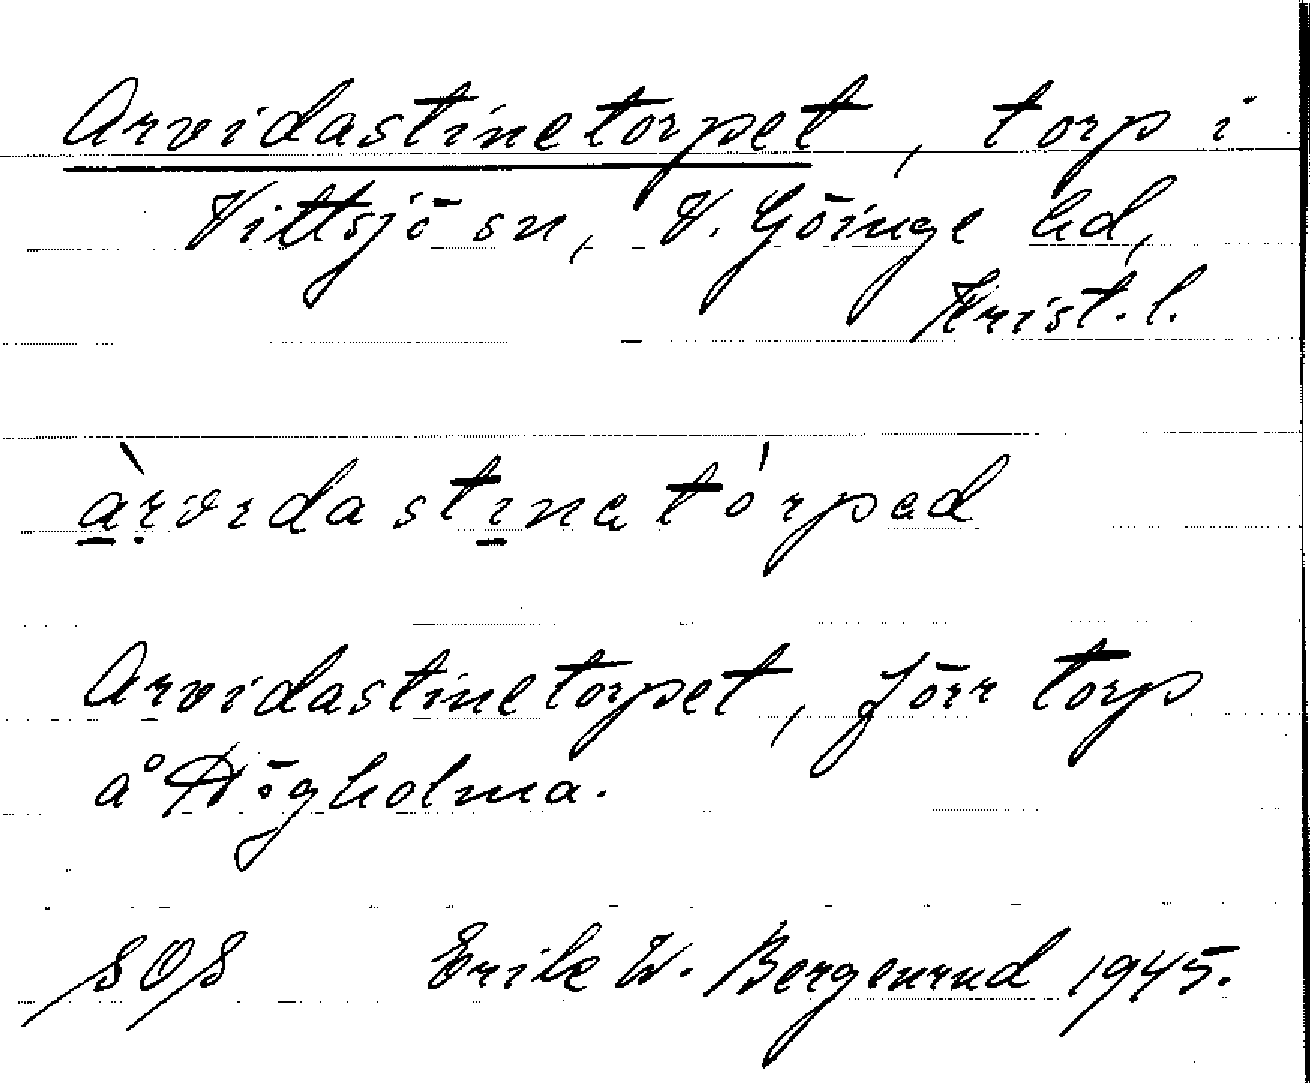 Arvidastinetorpet, torp i
Vittsjö sn, V. Göinge hd,
Krist. l.
àrvidastinatórpad
Arvidastinetorpet, förr torp
å Högholma.
SOS Erik W. Bergenrud 1945.